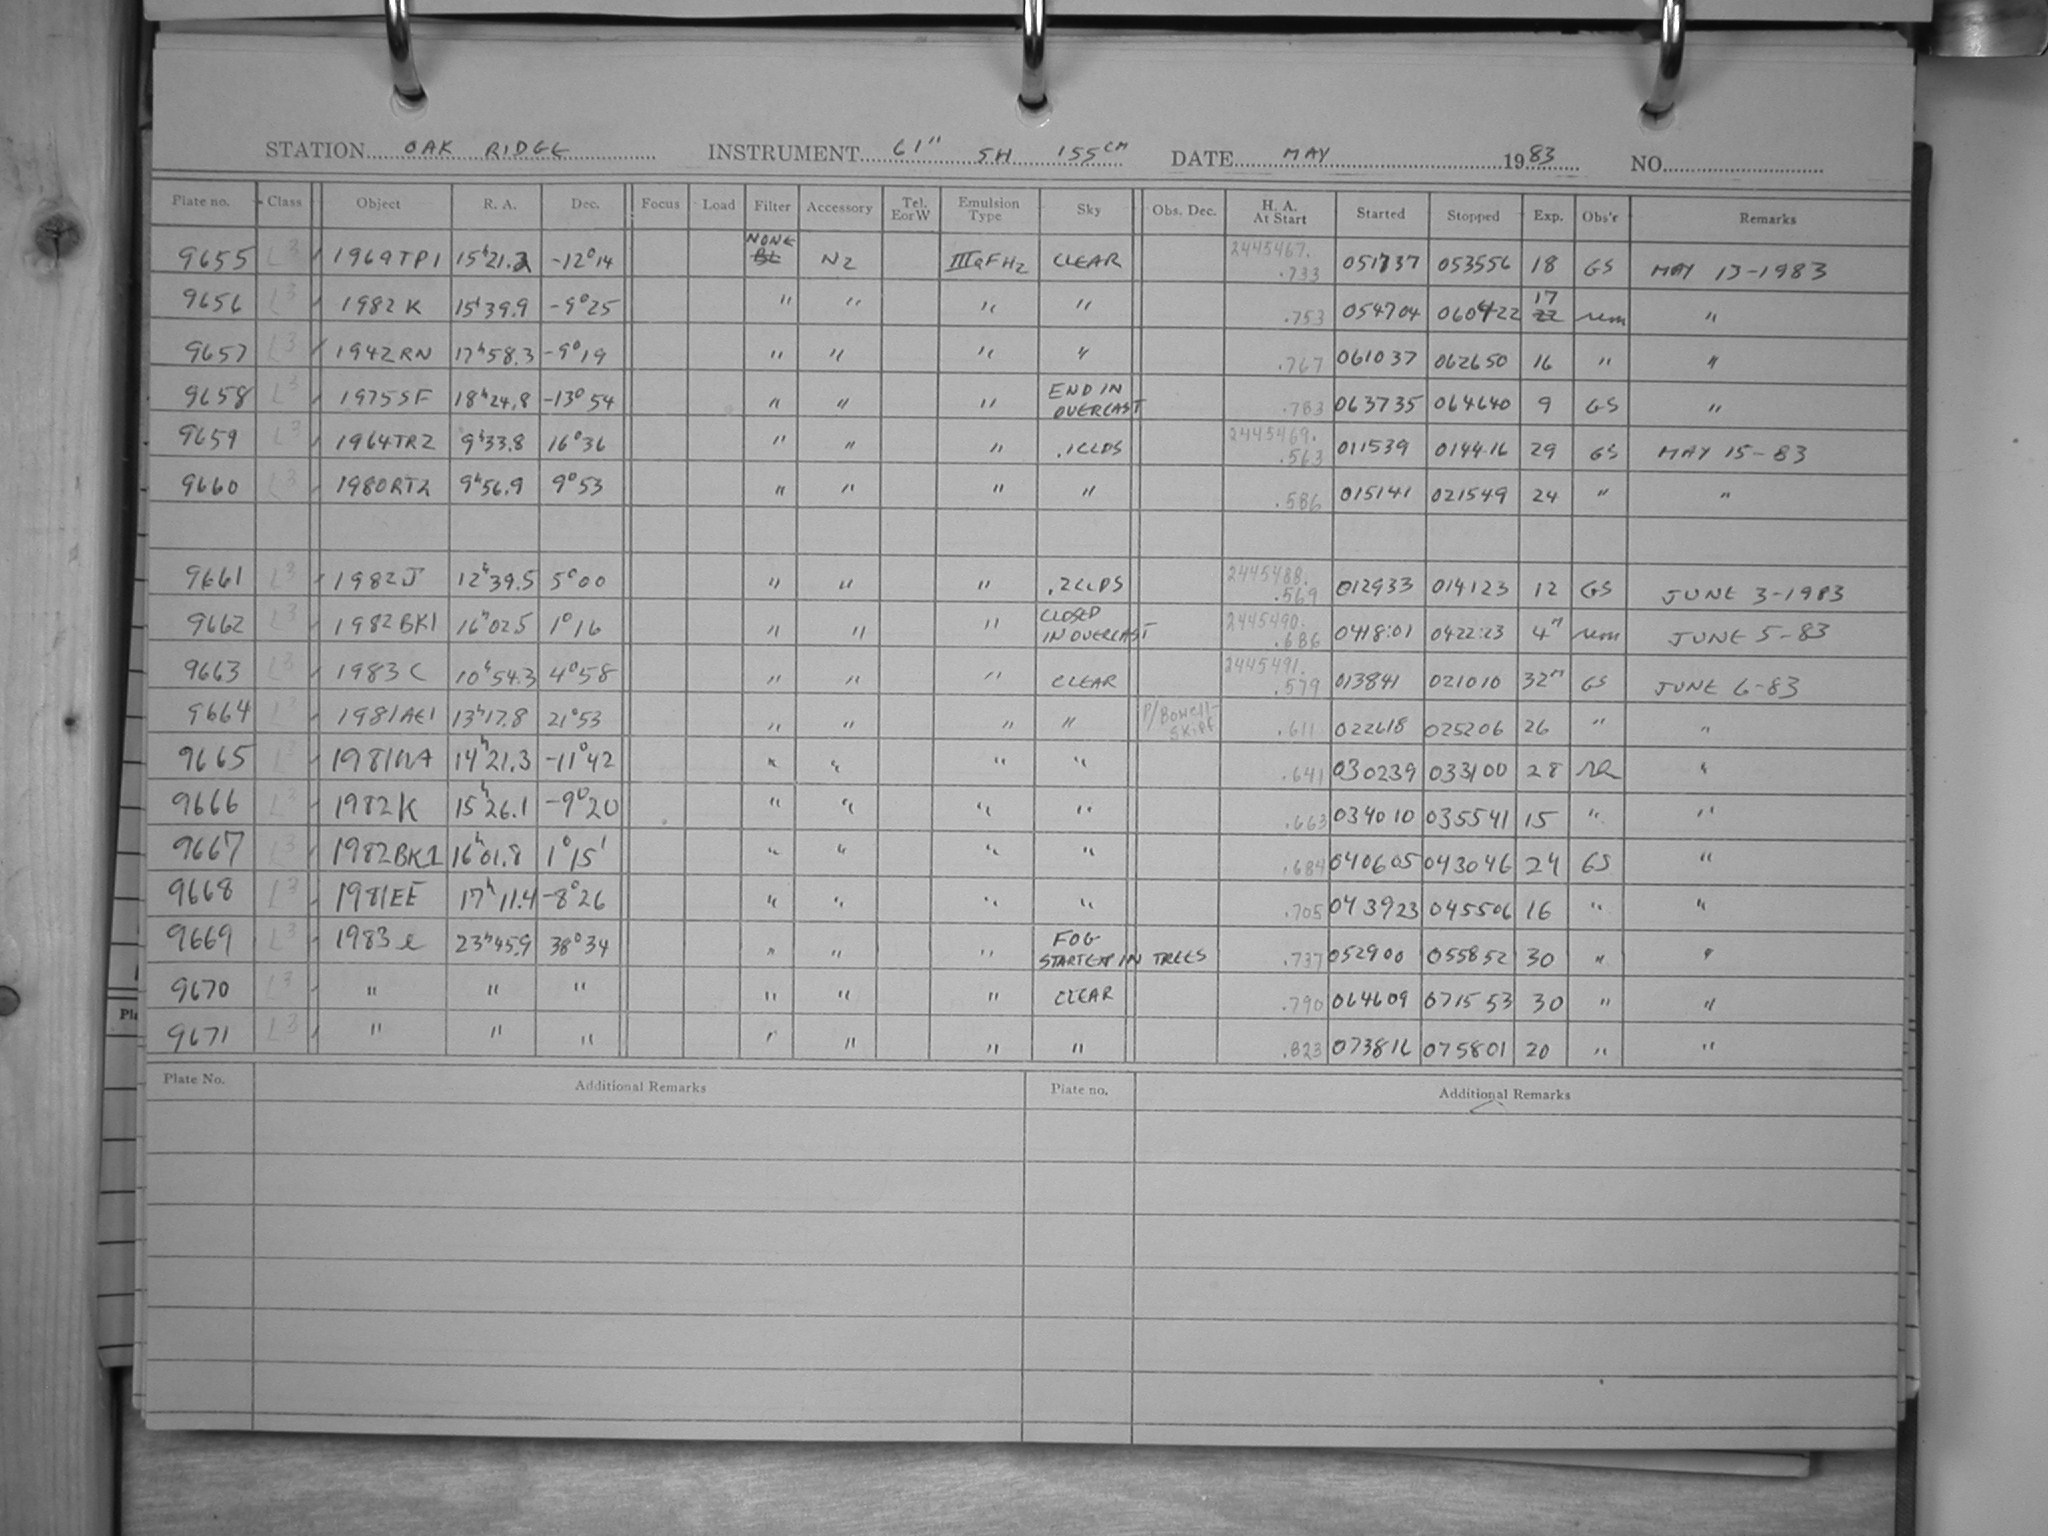 STATION OAK RIDGE INSTRUMENT 61" SH 155CM DATE MAY 1983 NO.
Plate no. Class Object R. A. Dec. Focus Load Filter Accessory Tel. EorW Emulsion Type Sky Obs. Dec. H. A. At Start Started Stopped Exp. Obs'r Remarks
9655 L3 1969TP1 15h21.2 -12°14 NONE N2 IIIaFH2 CLEAR 2445467. .733 051737 053556 18 GS MAY 13-1983
9656 L3 1982K 15h39.9 -9°25 " " " " .753 054704 060422 17 rem "
9657 L3 1942RN 17h58.3 -9°19 " " " " .767 061037 062650 16 " "
9658 L3 1975SF 18h24.8 -13°54 " " " END IN OVERCAST .783 063735 064640 9 GS "
9659 L3 1964TR2 9h33.8 16°36 " " " .1CLDS 2445469. .563 011539 014416 29 GS MAY 15-83
9660 L3 1980RT2 9h56.9 9°53 " " " " .586 015141 021549 24 " "
9661 L3 1982J 12h39.5 5°00 " " " .2CLDS 2445488. .569 012933 014123 12 GS JUNE 3-1983
9662 L3 1982BK1 16h02.5 1°16 " " " CLOSED IN OVERCAST 2445490. .686 0418:01 0422:23 4m rem JUNE 5-83
9663 L3 1983C 10h54.3 4°58 " " " CLEAR 2445491. .579 013841 021010 32m GS JUNE 6-83
9664 L3 1981AE1 13h17.8 21°53 " " " " P/Bowell-Skiff .611 022618 025206 26 " "
9665 L3 14h21.3 -11°42 " " " " .641 030239 033100 28 "
9666 L3 1982K 15h26.1 -9°20 " " " " .663 034010 035541 15 " "
9667 L3 1982BK1 16h01.8 1°15' " " " " .684 040605 043046 24 GS "
9668 L3 1981EE 17h11.4 -8°26 " " " " .705 043923 045506 16 " "
9669 L3 1983e 23h45.9 38°34 " " " FOG START EXP IN TREES .737 052900 055852 30 " "
9670 L3 " " " " " " CLEAR .790 064609 071553 30 " "
9671 L3 " " " " " " " .823 073816 075801 20 " "
Plate No. Additional Remarks Plate no. Additional Remarks